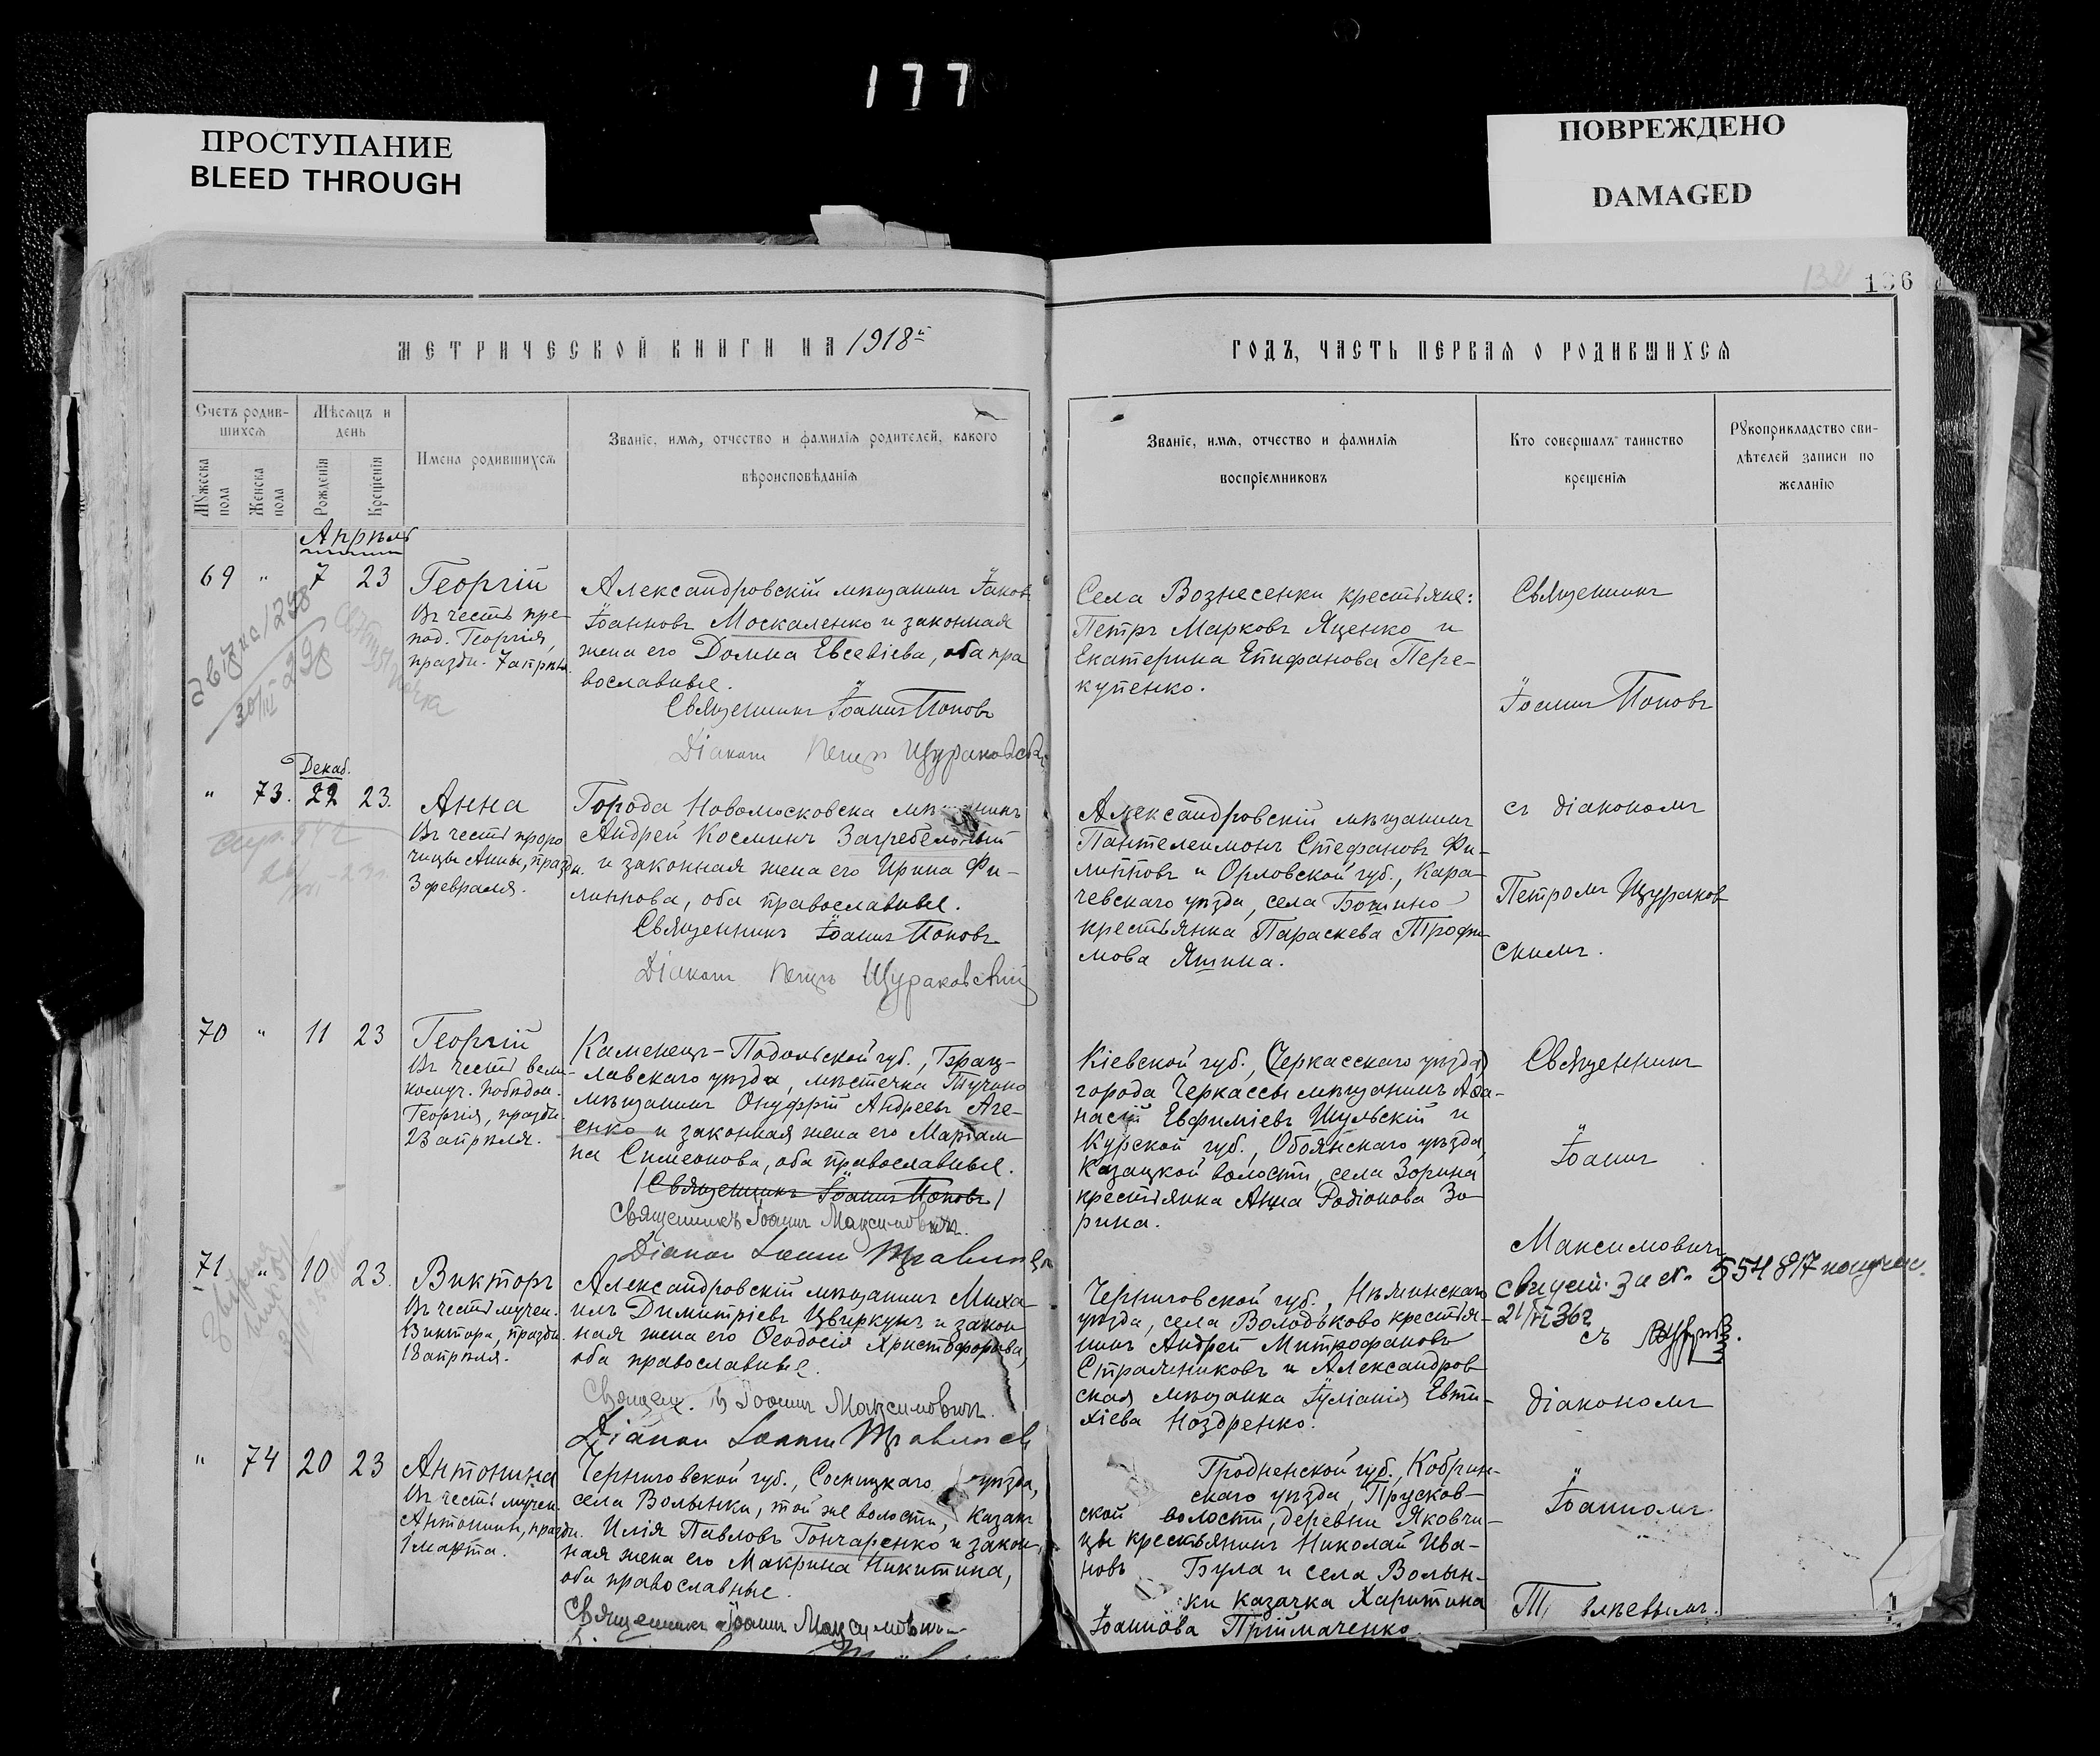 177
ПРОСТУПАНИЕ
BLEED THROUGH
ПОВРЕЖДЕНО
DAMAGED
136
МЕТРИЧЕСКОЙ КНИГИ НА 1918й
ГОДЪ, ЧАСТЬ ПЕРВАЯ О РОДИВШИХСЯ
Счетъ родив-
шихся
Мужеска
пола
Женска
пола
Мѣсяцъ и
день
Рожденія
Крещенія
Имена родившихся
Званіе, имя, отчество и фамилія родителей, какого
вѣроисповѣданія
Званіе, имя, отчество и фамилія
воспріемниковъ
Кто совершалъ таинство
крещенія
Рукоприкладство сви-
дѣтелей записи по
желанію
Апрѣль
69 " 7 23
Георгій
Въ честь пре-
под. Георгія,
праздн. 7 апрѣля.
Александровскій мѣщанинъ Іаковъ
Іоанновъ Москаленко и законная
жена его Домна Евсевіева, оба пра
вославные.
Священникъ Іоаннъ Поповъ
Діаконъ Петръ Щураковскій
Села Вознесенки крестьяне:
Петръ Марковъ Яценко и
Екатерина Епифанова Пере-
купенко.
Священникъ
Іоаннъ Поповъ
Декаб.
" 73. 22 23.
Анна
Въ честь проро
чицы Анны, праздн.
3 февраля.
Города Новомосковска мѣщанинъ
Андрей Косминъ Загребельный
и законная жена его Ирина Фи-
липпова, оба православные.
Священникъ Іоаннъ Поповъ
Діаконъ Петръ Щураковскій
Александровскій мѣщанинъ
Пантелеимонъ Стефановъ Фи-
липповъ и Орловской губ., Кара-
чевскаго уѣзда, села Бошино
крестьянка Параскева Трофи-
мова Яшина.
съ діакономъ
Петромъ Щураков
скимъ.
70 " 11 23
Георгій
Въ честь вели-
комуч. Побѣдон.
Георгія, праздн.
23 апрѣля.
Каменецъ-Подольской губ., Брац-
лавскаго уѣзда, мѣстечка Тучино
мѣщанинъ Онуфрій Андреевъ Аге-
енко и законная жена его Маріам-
на Симеонова, оба православные.
(Священникъ Іоаннъ Поповъ)
Священникъ Іоаннъ Максимовичъ.
Діаконъ Іоаннъ
Кіевской губ., (Черкасскаго уѣзда)
города Черкассы мѣщанинъ Аѳа-
насій Евфиміевъ Шульскій и
Курской губ., Обоянскаго уѣзда,
Казацкой волости, села Зорина
крестьянка Анна Родіонова Зо-
рина.
Священникъ
Іоаннъ
Максимовичъ
71 " 10 23.
Викторъ
Въ честь мучен.
Виктора, праздн.
18 апрѣля.
Александровскій мѣщанинъ Миха-
илъ Димитріевъ Цвиркунъ и закон
ная жена его Ѳеодосія Христофорова,
оба православные.
Священ. Іоаннъ Максимовичъ.
Діаконъ Іоаннъ
Черниговской губ., Нѣжинскаго
уѣзда, села Володьково крестья-
нинъ Андрей Митрофановъ
Страчниковъ и Александров
ская мѣщанка Іуліанія Евти-
хіева Ноздренко.
21/VI 36г
съ
діакономъ
" 74 20 23
Антонина
Въ честь мучен.
Антонины, праздн.
1 марта.
Черниговской губ., Сосницкаго уѣзда,
села Волынки, той же волости, казакъ
Илія Павловъ Гончаренко и закон-
ная жена его Макрина Никитина,
оба православные.
Священникъ Іоаннъ Максимовичъ
Гродненской губ., Кобрин-
скаго уѣзда, Прусков-
ской волости, деревни Яковчи-
цы крестьянинъ Николай Ива-
новъ Була и села Волын-
ки казачка Харитина
Іоаннова Прiймаченко.
Іоанномъ